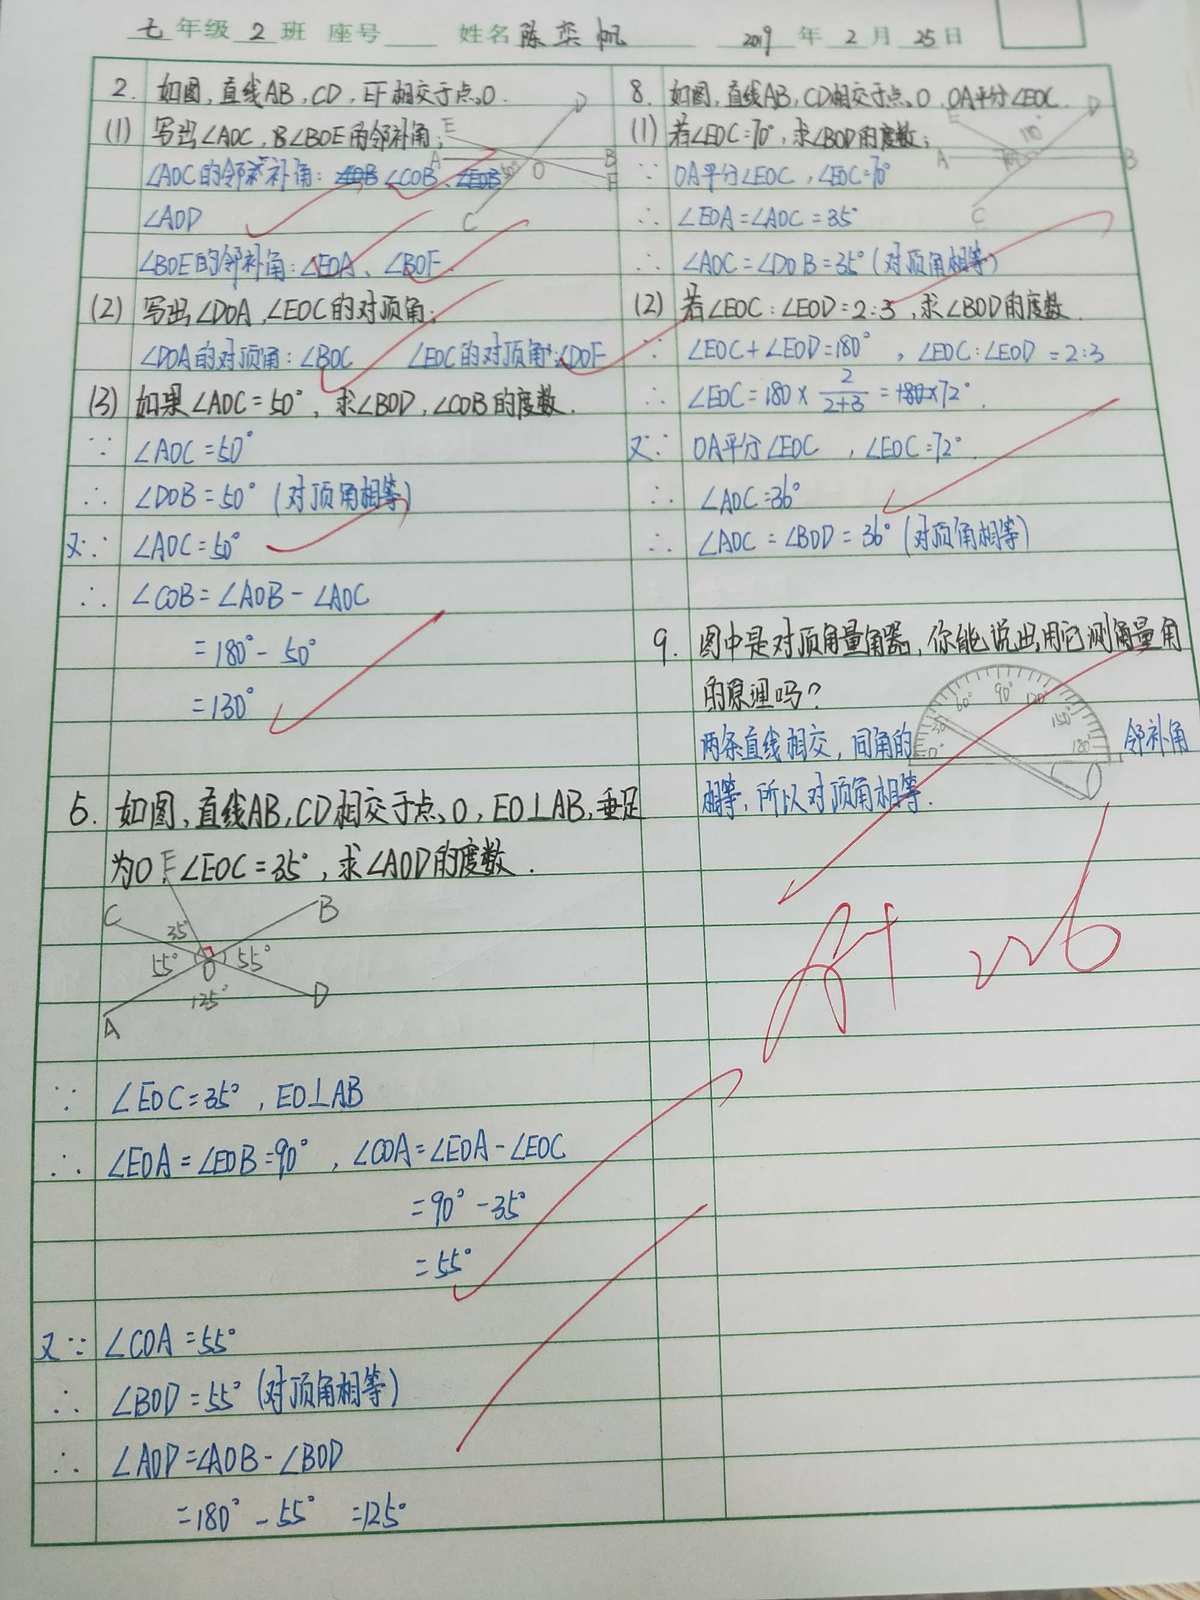 七年级 2 班 座号 姓名 陈奕帆 2019 年 2 月 25 日
2. 如图,直线AB,CD,EF相交于点O.
(1) 写出∠AOC,∠BOE的邻补角;
∠AOC的邻补角: ∠COB、
∠AOD
∠BOE的邻补角:∠EOA、∠BOF.
(2) 写出∠DOA,∠EOC的对顶角;
∠DOA的对顶角:∠BOC ∠EOC的对顶角:∠DOF
(3) 如果∠AOC=50°,求∠BOD,∠COB的度数.
∵ ∠AOC=50°
∴ ∠DOB=50°(对顶角相等)
又∵ ∠AOC=50°
∴ ∠COB=∠AOB-∠AOC
=180°-50°
=130°
E D A B O F C 50°
5. 如图,直线AB,CD相交于点O,EO⊥AB,垂足
为O,∠EOC=35°,求∠AOD的度数.
E C B 35° 55° O 55° 125° D A
∵ ∠EOC=35°,EO⊥AB
∴ ∠EOA=∠EOB=90°,∠COA=∠EOA-∠EOC
=90°-35°
=55°
又∵ ∠COA=55°
∴ ∠BOD=55°(对顶角相等)
∴ ∠AOD=∠AOB-∠BOD
=180°-55° =125°
8. 如图,直线AB,CD相交于点O,OA平分∠EOC.
(1) 若∠EOC=70°,求∠BOD的度数;
∵ OA平分∠EOC,∠EOC=70°
∴ ∠EOA=∠AOC=35°
∴ ∠AOC=∠DOB=35°(对顶角相等)
E D 110° A B C
(2) 若∠EOC:∠EOD=2:3,求∠BOD的度数.
∵ ∠EOC+∠EOD=180°,∠EOC:∠EOD=2:3
∴ ∠EOC=180×2/(2+3)=72°.
又∵ OA平分∠EOC,∠EOC=72°.
∴ ∠AOC=36°
∴ ∠AOC=∠BOD=36°(对顶角相等)
9. 图中是对顶角量角器,你能说出用它测量角
的原理吗?
0° 30° 60° 90° 120° 150° 180°
两条直线相交,同角的邻补角
相等,所以对顶角相等.
A+